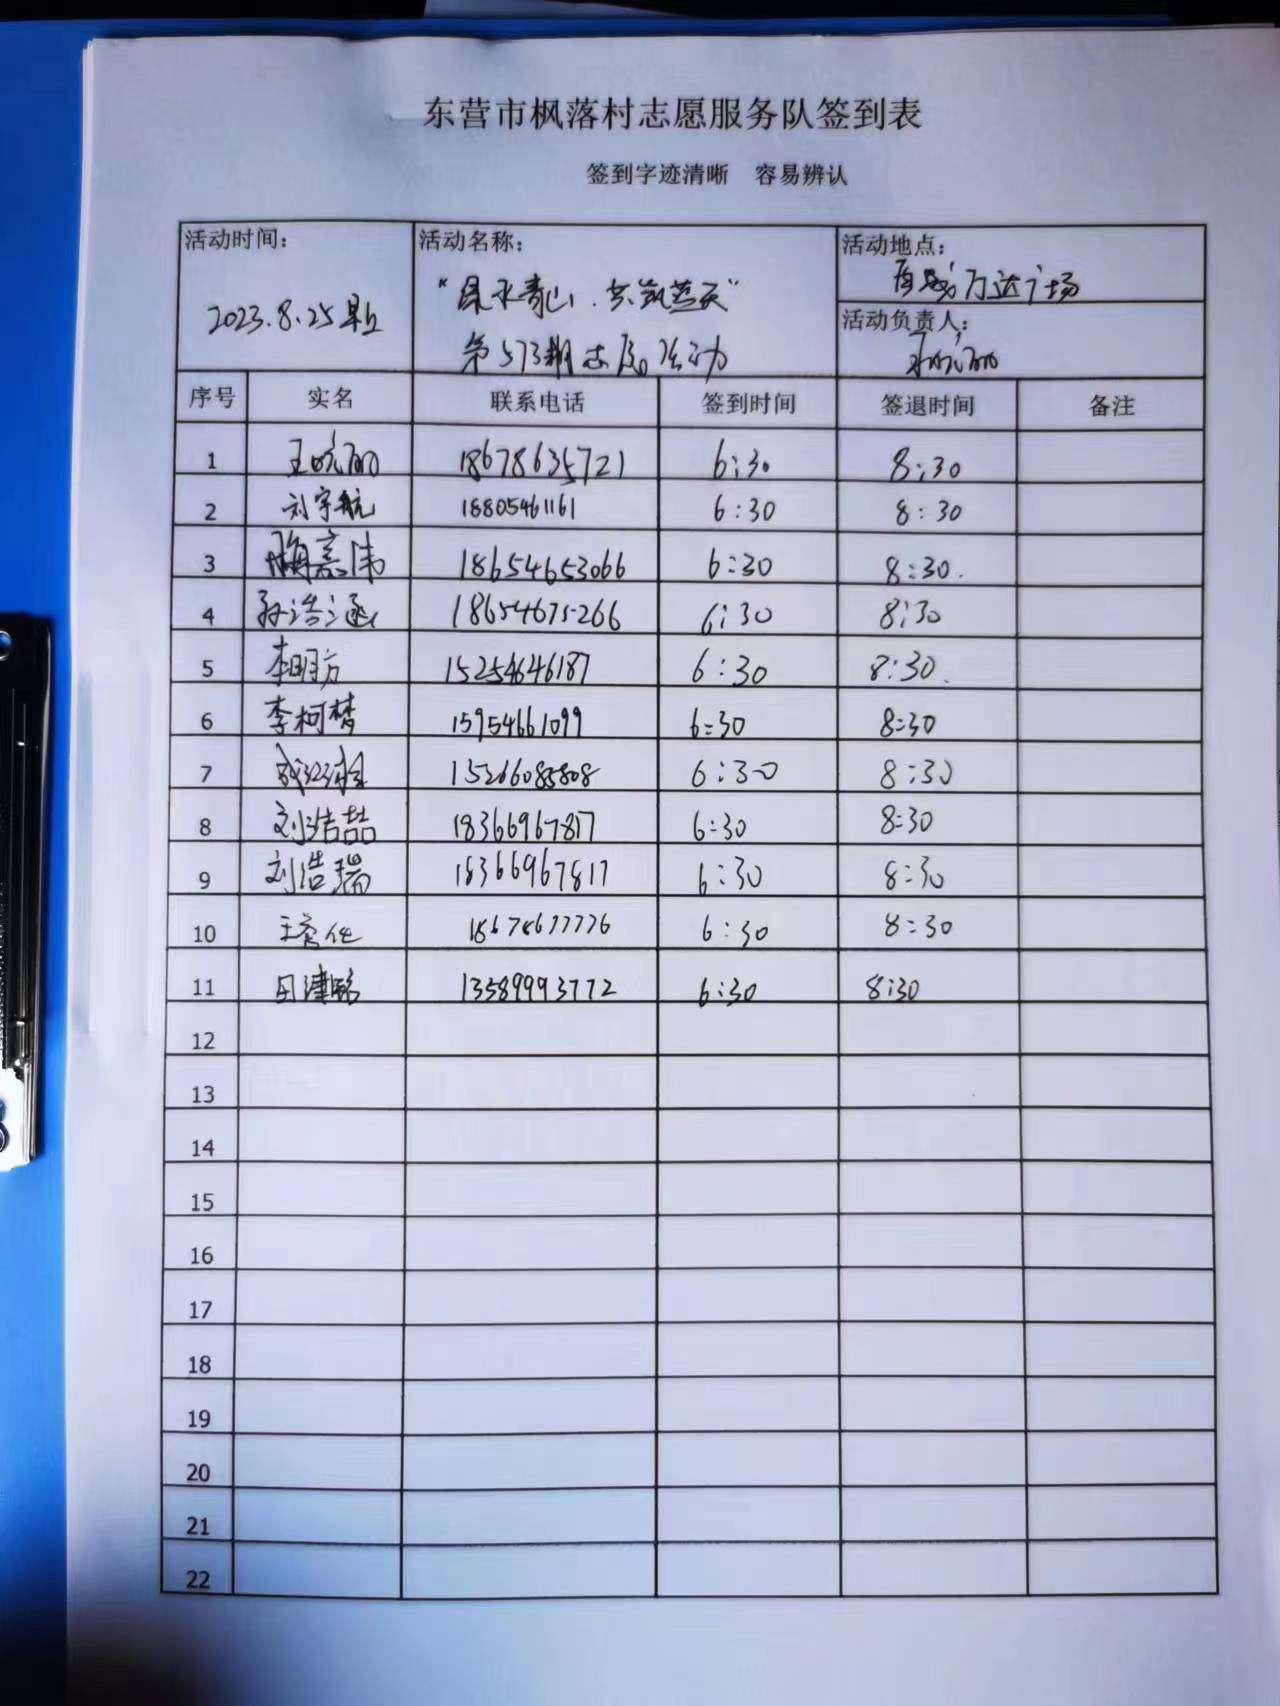 东营市枫落村志愿服务队签到表
签到字迹清晰 容易辨认
活动时间： 活动名称： 活动地点：
2023.8.25早上 "绿水青山、共筑蓝天" 西城万达广场
第573期志愿活动
活动负责人：
王晓丽
序号 实名 联系电话 签到时间 签退时间 备注
1 王晓丽 18678635721 6:30 8:30
2 刘宇航 18805461161 6:30 8:30
3 18654653066 6:30 8:30.
4 孙浩涵 18654675266 6:30 8:30
5 李明方 15254646187 6:30 8:30.
6 李柯梦 15954661099 6:30 8:30
7 15266085808 6:30 8:30
8 刘浩喆 18366967817 6:30 8:30
9 刘浩瑞 18366967817 6:30 8:30
10 18678677776 6:30 8:30
11 13589993772 6:30 8:30
12
13
14
15
16
17
18
19
20
21
22